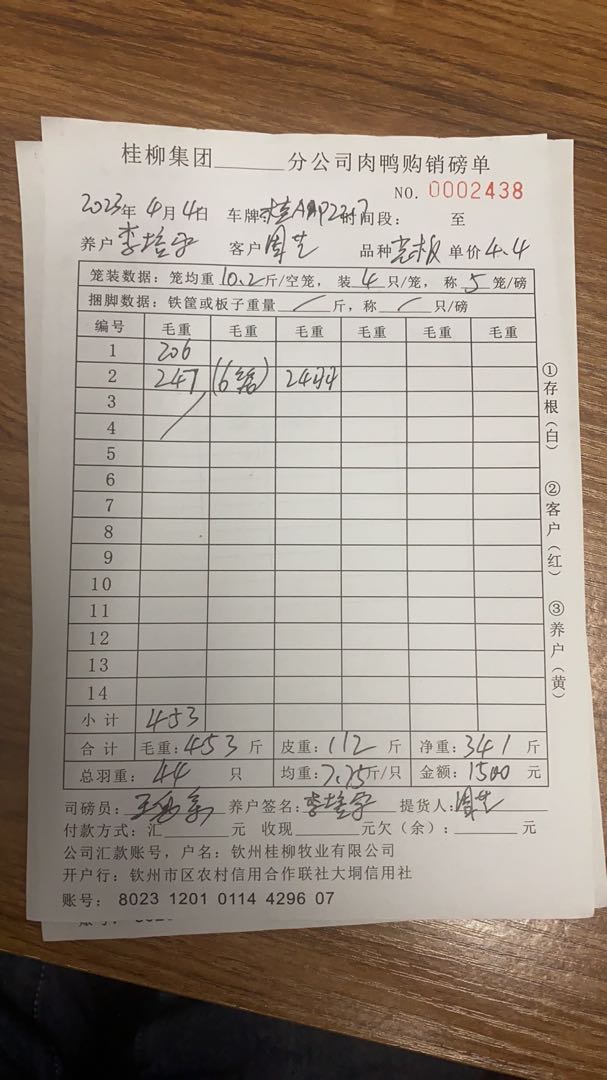 桂柳集团______分公司肉鸭购销磅单
NO. 0002438
2023年4月4日 车牌 时间段: 至
养户 李培 客户 周 品种 单价4.4
笼装数据: 笼均重10.2斤/空笼, 装4只/笼, 称5笼/磅
捆脚数据: 铁筐或板子重量/斤, 称/只/磅
编号 毛重 毛重 毛重 毛重 毛重 毛重
1 206
2 247 (6笼) 24
3
4
5
6
7
8
9
10
11
12
13
14
小计 453
合计 毛重: 453斤 皮重: 112斤 净重: 341斤
总羽重: 44只 均重: 7.75斤/只 金额: 1500元
司磅员: 王 养户签名: 李培 提货人: 周
付款方式: 汇______元 收现______元欠(余): ______元
公司汇款账号, 户名: 钦州桂柳牧业有限公司
开户行: 钦州市区农村信用合作联社大垌信用社
账号: 8023 1201 0114 4296 07
①存根(白)
②客户(红)
③养户(黄)